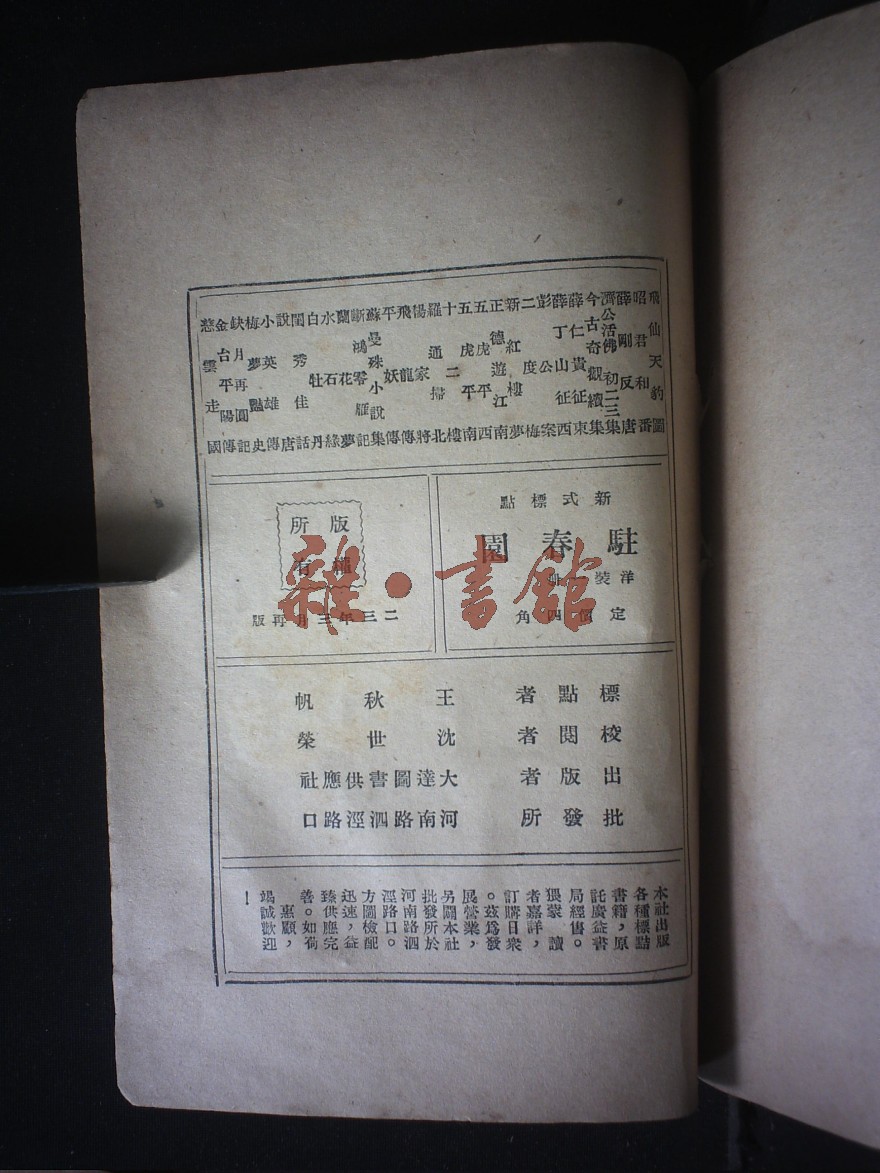 飛仙天豹圖
昭君和番
薛剛反唐
濟公活佛初二三集
今古奇觀續集
薛仁貴征東
薛丁山征西
彭公案
二度梅
新紅樓夢
正德遊江南
五虎平西
五虎平南
十二樓
羅通掃北
楊家將
飛龍傳
平妖傳
蘇曼殊小說集
斷鴻零雁記
蘭花夢
水石緣
白牡丹
閨秀佳話
說唐
小英雄傳
梅夢豔史
缺月再圓記
金台平陽傳
慈雲走國
新式標點
駐春園
洋裝一冊
定價四角
版權
所有
二三年三月再版
標點者 王秋帆
校閱者 沈世榮
出版者 大達圖書供應社
批發所 河南路泗涇路口
本社出版
各種標點
書籍，原
託廣益書
局經售。
猥蒙讀
者嘉許，
訂購日衆
。茲爲發
展營業，
另闢本社
批發所於
河南路泗
涇路口。
方圖檢配
迅速，益
臻供應完
善。如荷
惠顧，
竭誠歡迎
！
雜·書館